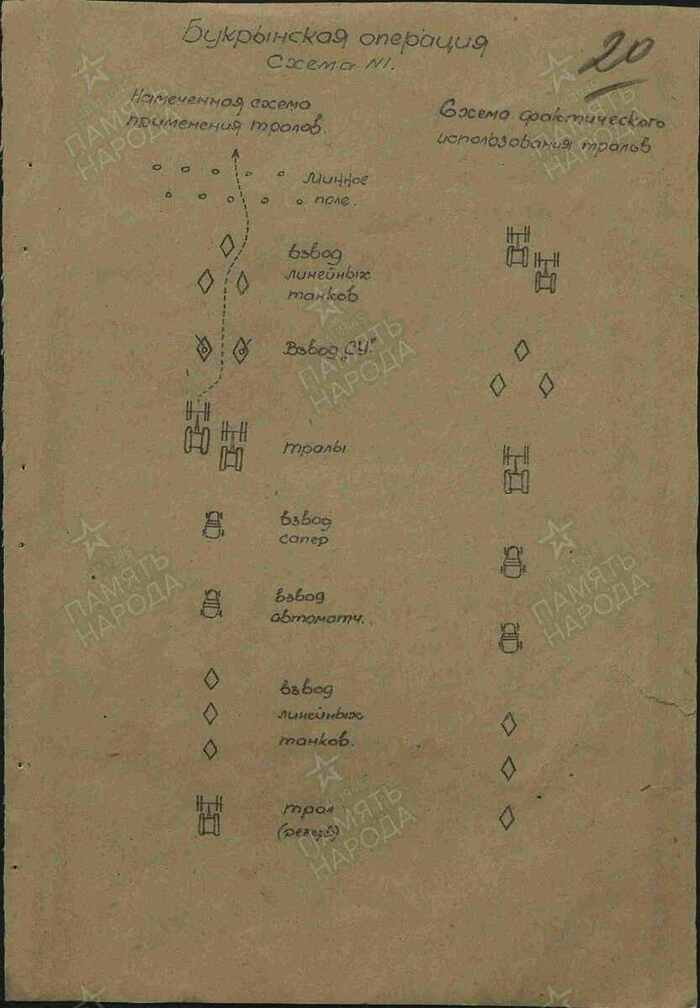 Букрынская операция
Схема №1.
20
Намеченная схема
применения тралов.
Схема фактического
использования тралов
минное
поле.
взвод
линейных
танков
Взвод „СУ"
тралы
взвод
сапер
взвод
автоматч.
взвод
линейных
танков.
трал
(резерв)
ПАМЯТЬ
НАРОДА
ПАМЯТЬ
НАРОДА
ПАМЯТЬ
НАРОДА
ПАМЯТЬ
НАРОДА
ПАМЯТЬ
НАРОДА
ПАМЯТЬ
НАРОДА